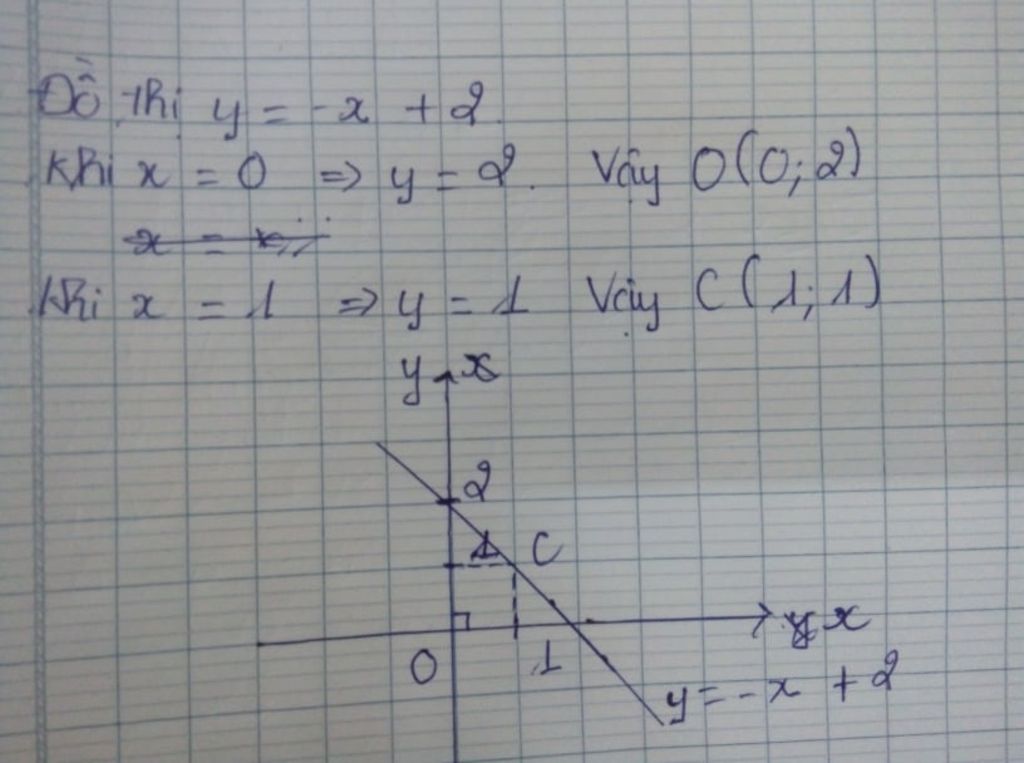 Đồ thị y = -x + 2
Khi x = 0 => y = 2. Vậy O(0; 2)
Khi x = 1 => y = 1 Vậy C(1; 1)
y
2
1 C
x
O 1
y = -x + 2